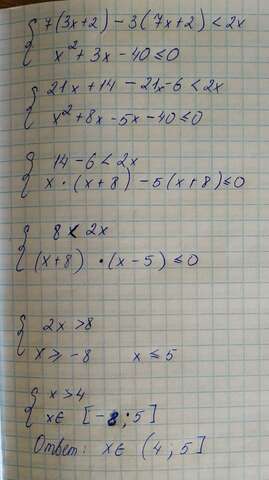 7(3x+2) - 3(7x+2) < 2x
x² + 3x - 40 ≤ 0
21x + 14 - 21x - 6 < 2x
x² + 8x - 5x - 40 ≤ 0
14 - 6 < 2x
x · (x+8) - 5(x+8) ≤ 0
8 < 2x
(x+8) · (x-5) ≤ 0
2x > 8
x ≥ -8 x ≤ 5
x > 4
x ∈ [-8; 5]
Ответ: x ∈ (4; 5]